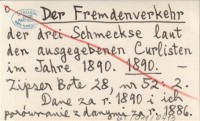 Der Fremdenverkehr
der drei Schmeckse laut
den ausgegebenen Curlisten
im Jahre 1890. 1890. —
Zipser Bote 28, nr 52: 2.
Dane za r. 1890 i ich
porównanie z danymi za r. 1886.